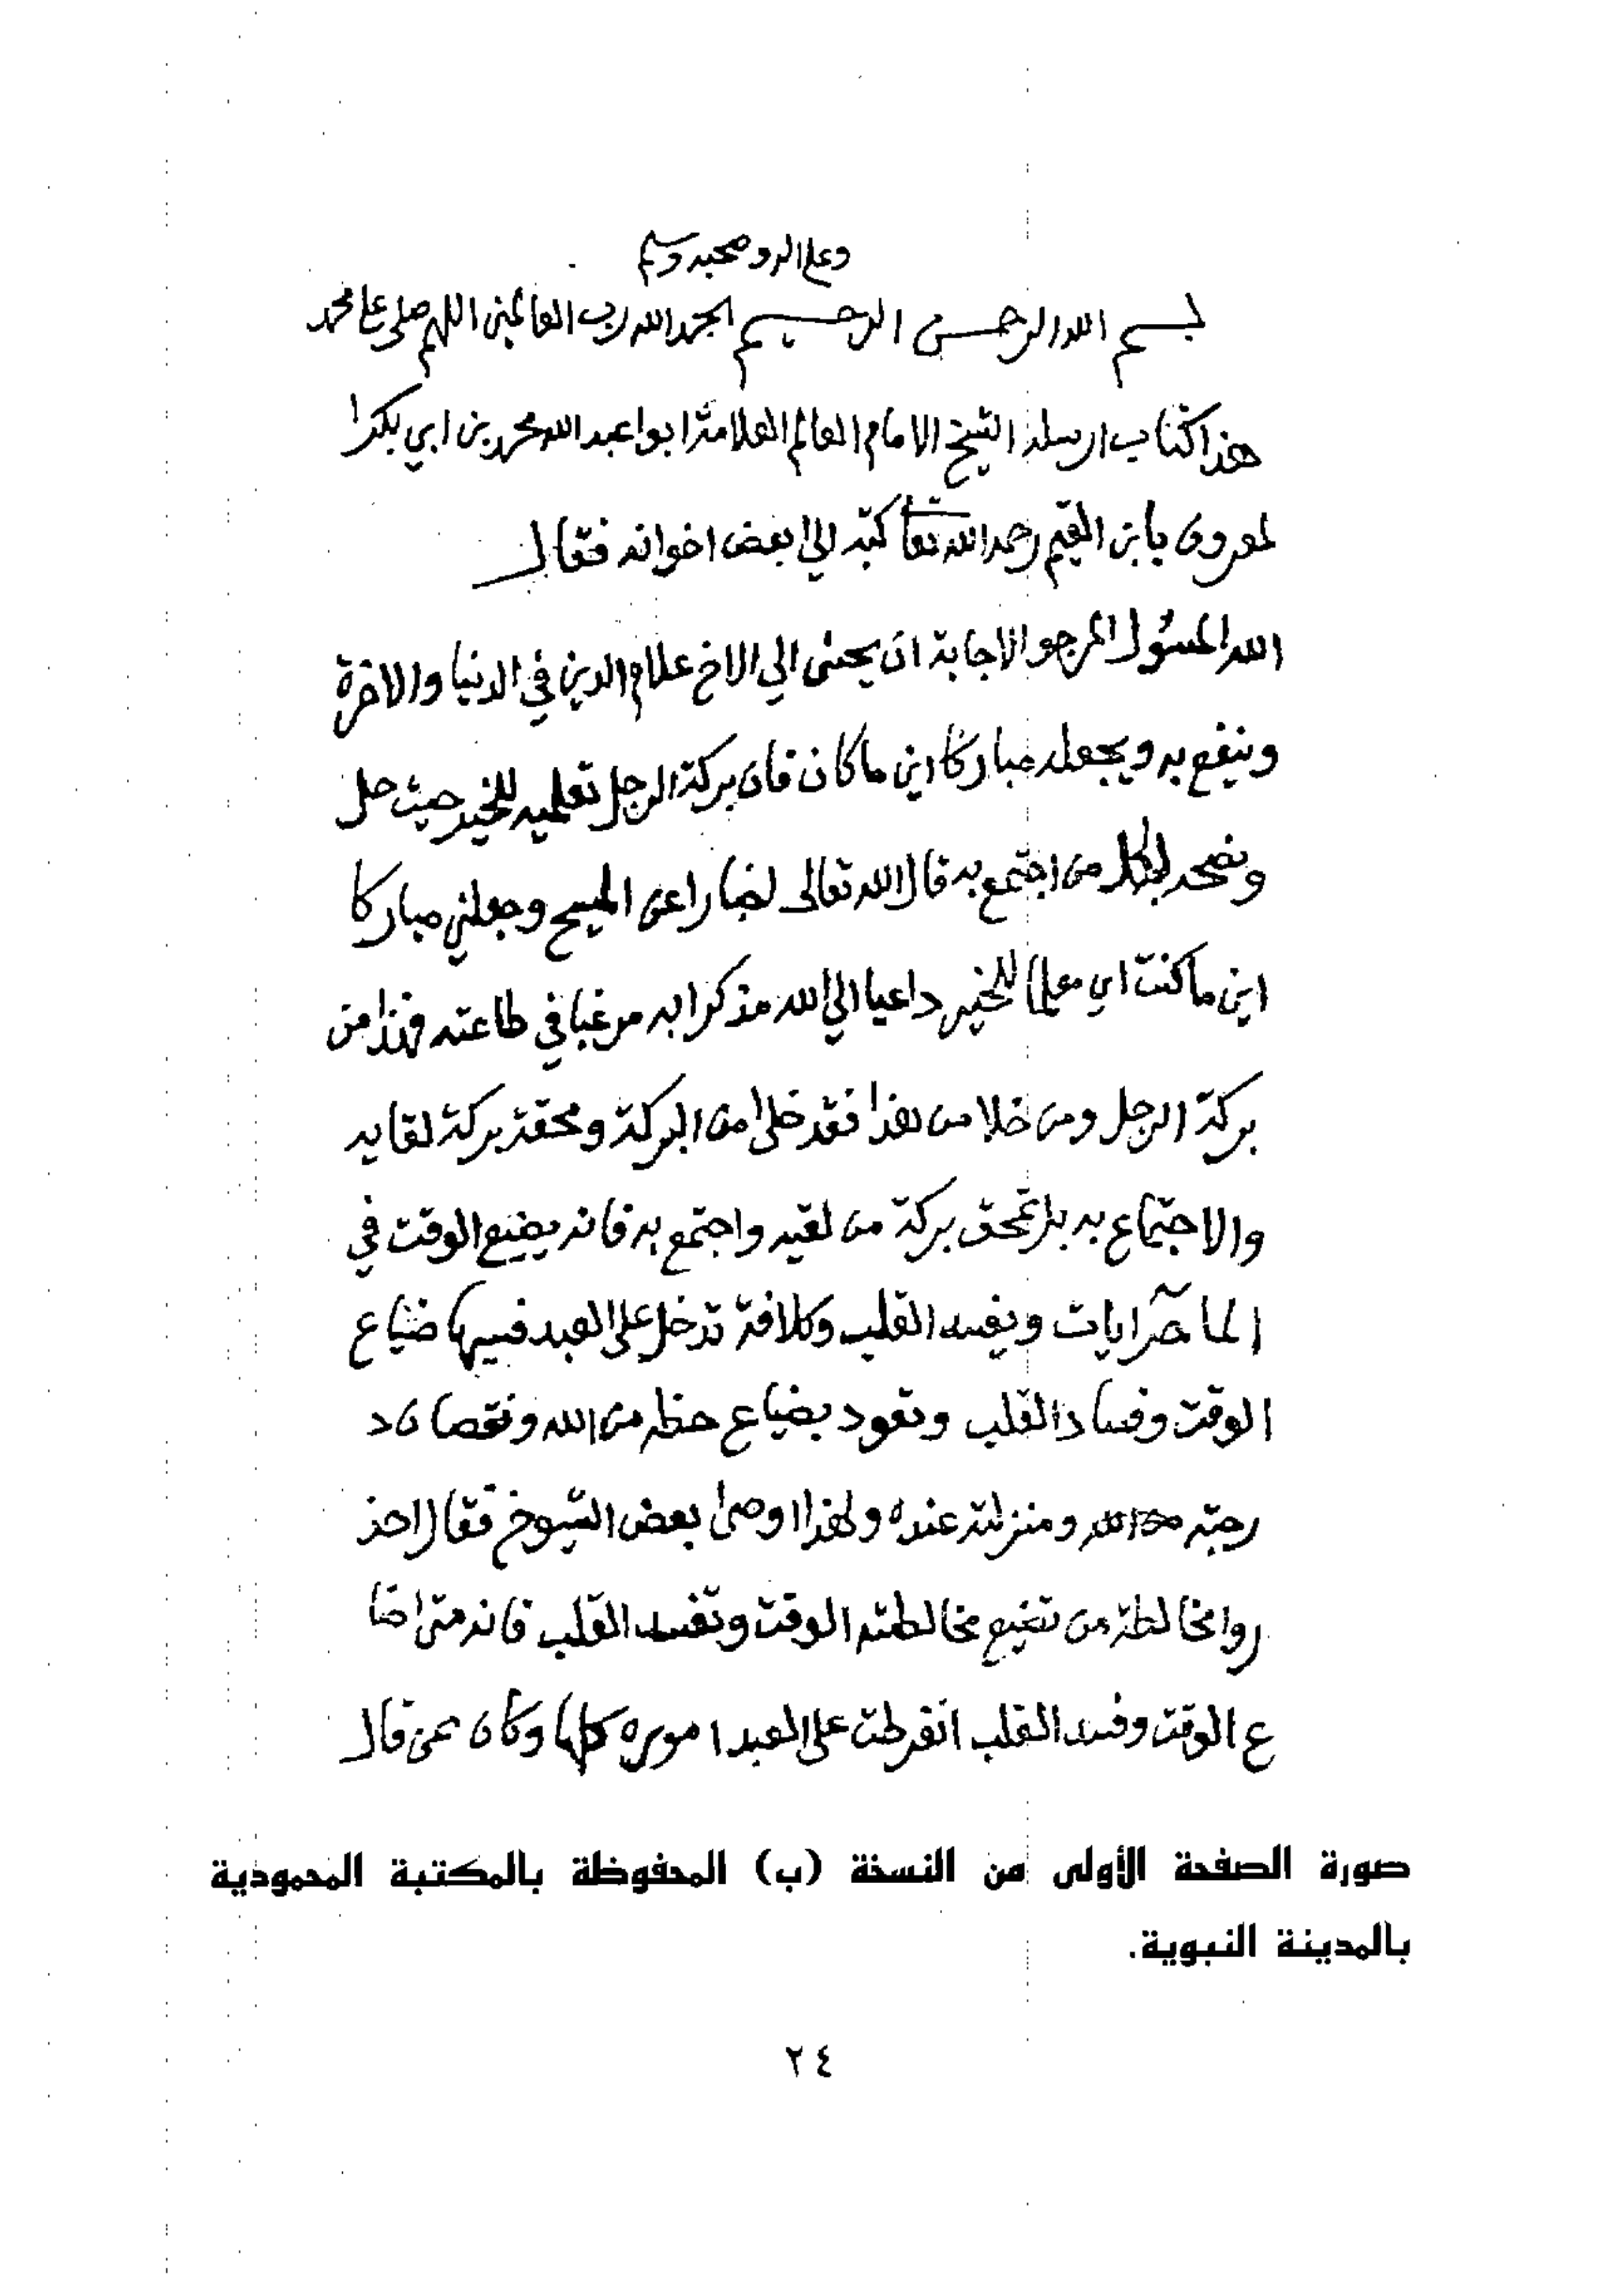 وعلى اله وصحبه وسلم
بسم الله الرحمن الرحيم الحمد لله رب العالمين اللهم صلى على محمد
هذا كتاب ارسله الشيخ الامام العالم العلامة ابوا عبد الله محمد بن ابي بكر ا
لمعروف بابن القيم رحمه الله تعا كتبه الى بعض اخوانه فقال
الله المسئول المرجو الاجابة ان يحسن الي الاخ علاء الدين في الدنيا والاخرة
وينفع به ويجعله مباركا اين ما كان فان بركة الرجل تعليمه للخير حيث حل
ونصحه لكل من اجتمع به قال الله تعالى اخبارا عن المسيح وجعلني مباركا
اين ما كنت اي معلما للخير داعيا الي الله مذكرا به مرغبا في طاعته فهذا من
بركة الرجل ومن خلا من هذا فقد خلى من البركة ومحقة بركة لقايه
والاجتماع به بل تمحق بركة من لقيه واجتمع به فانه يضيع الوقت في
الماجرايات ويفسد القلب وكل افة تدخل على العبد فسببها ضياع
الوقت وفساد القلب وتعود بضياع حظه من الله ونقصان د
رجته ومنزلته عنده ولهذا اوصى بعض الشيوخ فقال احذ
روا مخالطة من تضيع مخالطته الوقت وتفسد القلب فانه متى ضا
ع الوقت وفسد القلب انفرطت على العبد اموره كلها وكان ممن قال
صورة الصفحة الأولى من النسخة (ب) المحفوظة بالمكتبة المحمودية
بالمدينة النبوية.
٢٤